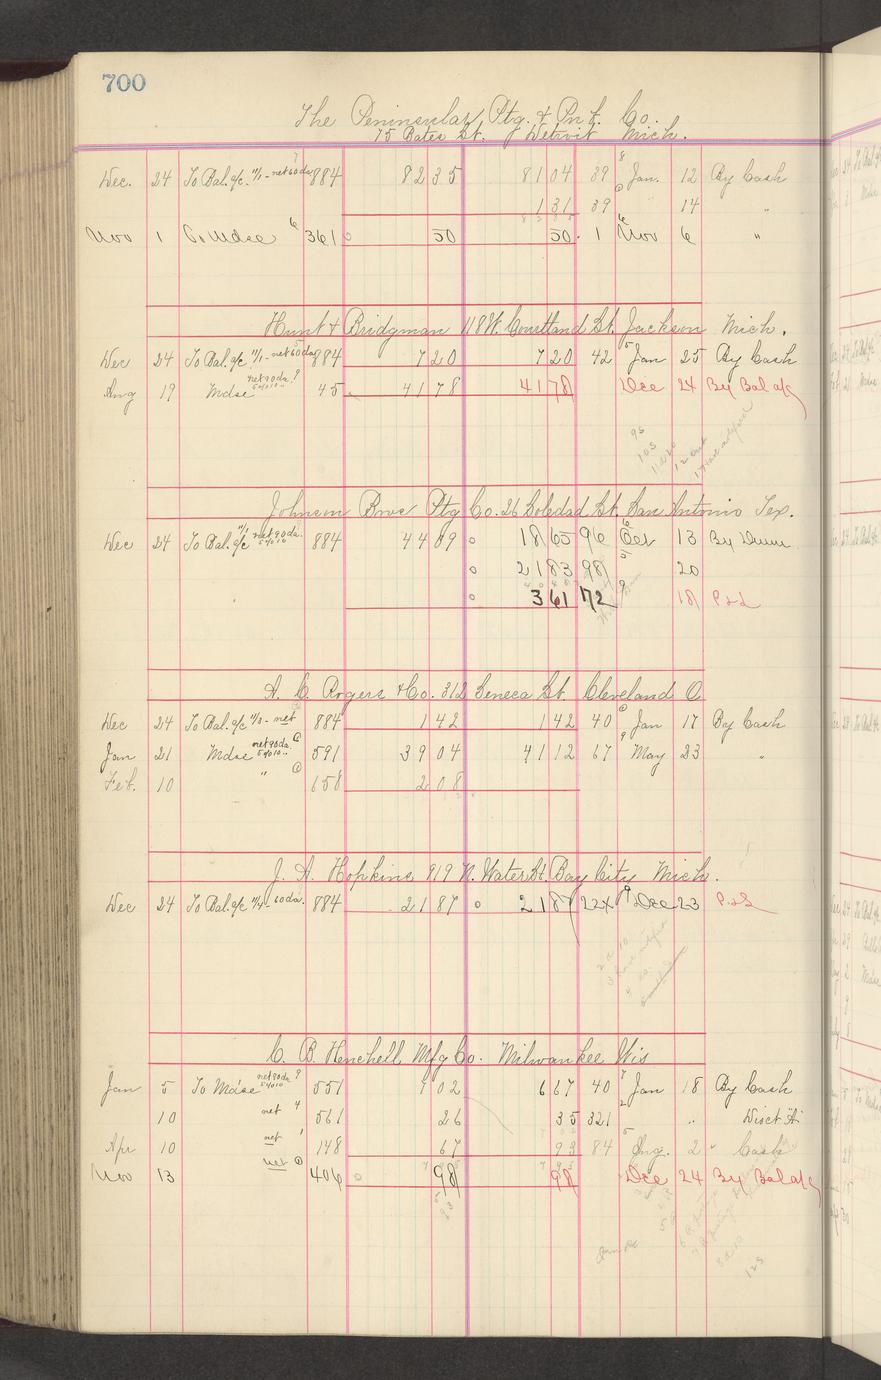 700
The Peninsular Ptg. & Pnt. Co.
75 Bates St. Detroit Mich.
Dec. 24 To Bal. a/c. 11/1 - net 60 da. 884 8235 8104 39 Jan. 12 By Cash
131 39 " 14 "
Nov 1 To Mdse 361 50 50 1 Nov 6 "
Hunt & Bridgman 118 W. Courtland St. Jackson Mich.
Dec 24 To Bal. a/c 11/1 - net 60 da 884 720 720 42 Jan 25 By Cash
Aug 19 Mdse net 90 da. 45 4178 4178 Dec 24 By Bal a/c
Johnson Bros Ptg Co. 26 Soledad St. San Antonio Tex.
Dec 24 To Bal. a/c 11/1 net 90 da. 884 4409 1865 96 Oct 13 By
2183 98 20
361 172 18 P&L
A. C. Rogers & Co. 312 Seneca St. Cleveland O
Dec 24 To Bal. a/c 11/3 - net 884 142 142 40 Jan 17 By Cash
Jan 21 Mdse net 90 da. 591 3904 4112 67 May 23 "
Feb. 10 " 658 208
J. A. Hopkins 919 N. Water St. Bay City Mich.
Dec 24 To Bal. a/c 11/4 - 60 da. 884 2187 2187 224 Dec 23 P&L
C. B. Henchell Mfg Co. Milwaukee Wis
Jan 5 To Mdse net 90 da 551 702 667 40 Jan 18 By Cash
10 net 561 26 35 321 " Disct
Apr 10 net 148 67 93 84 Aug. 2 " Cash
Nov 13 net 406 98 98 Dec 24 By Bal a/c